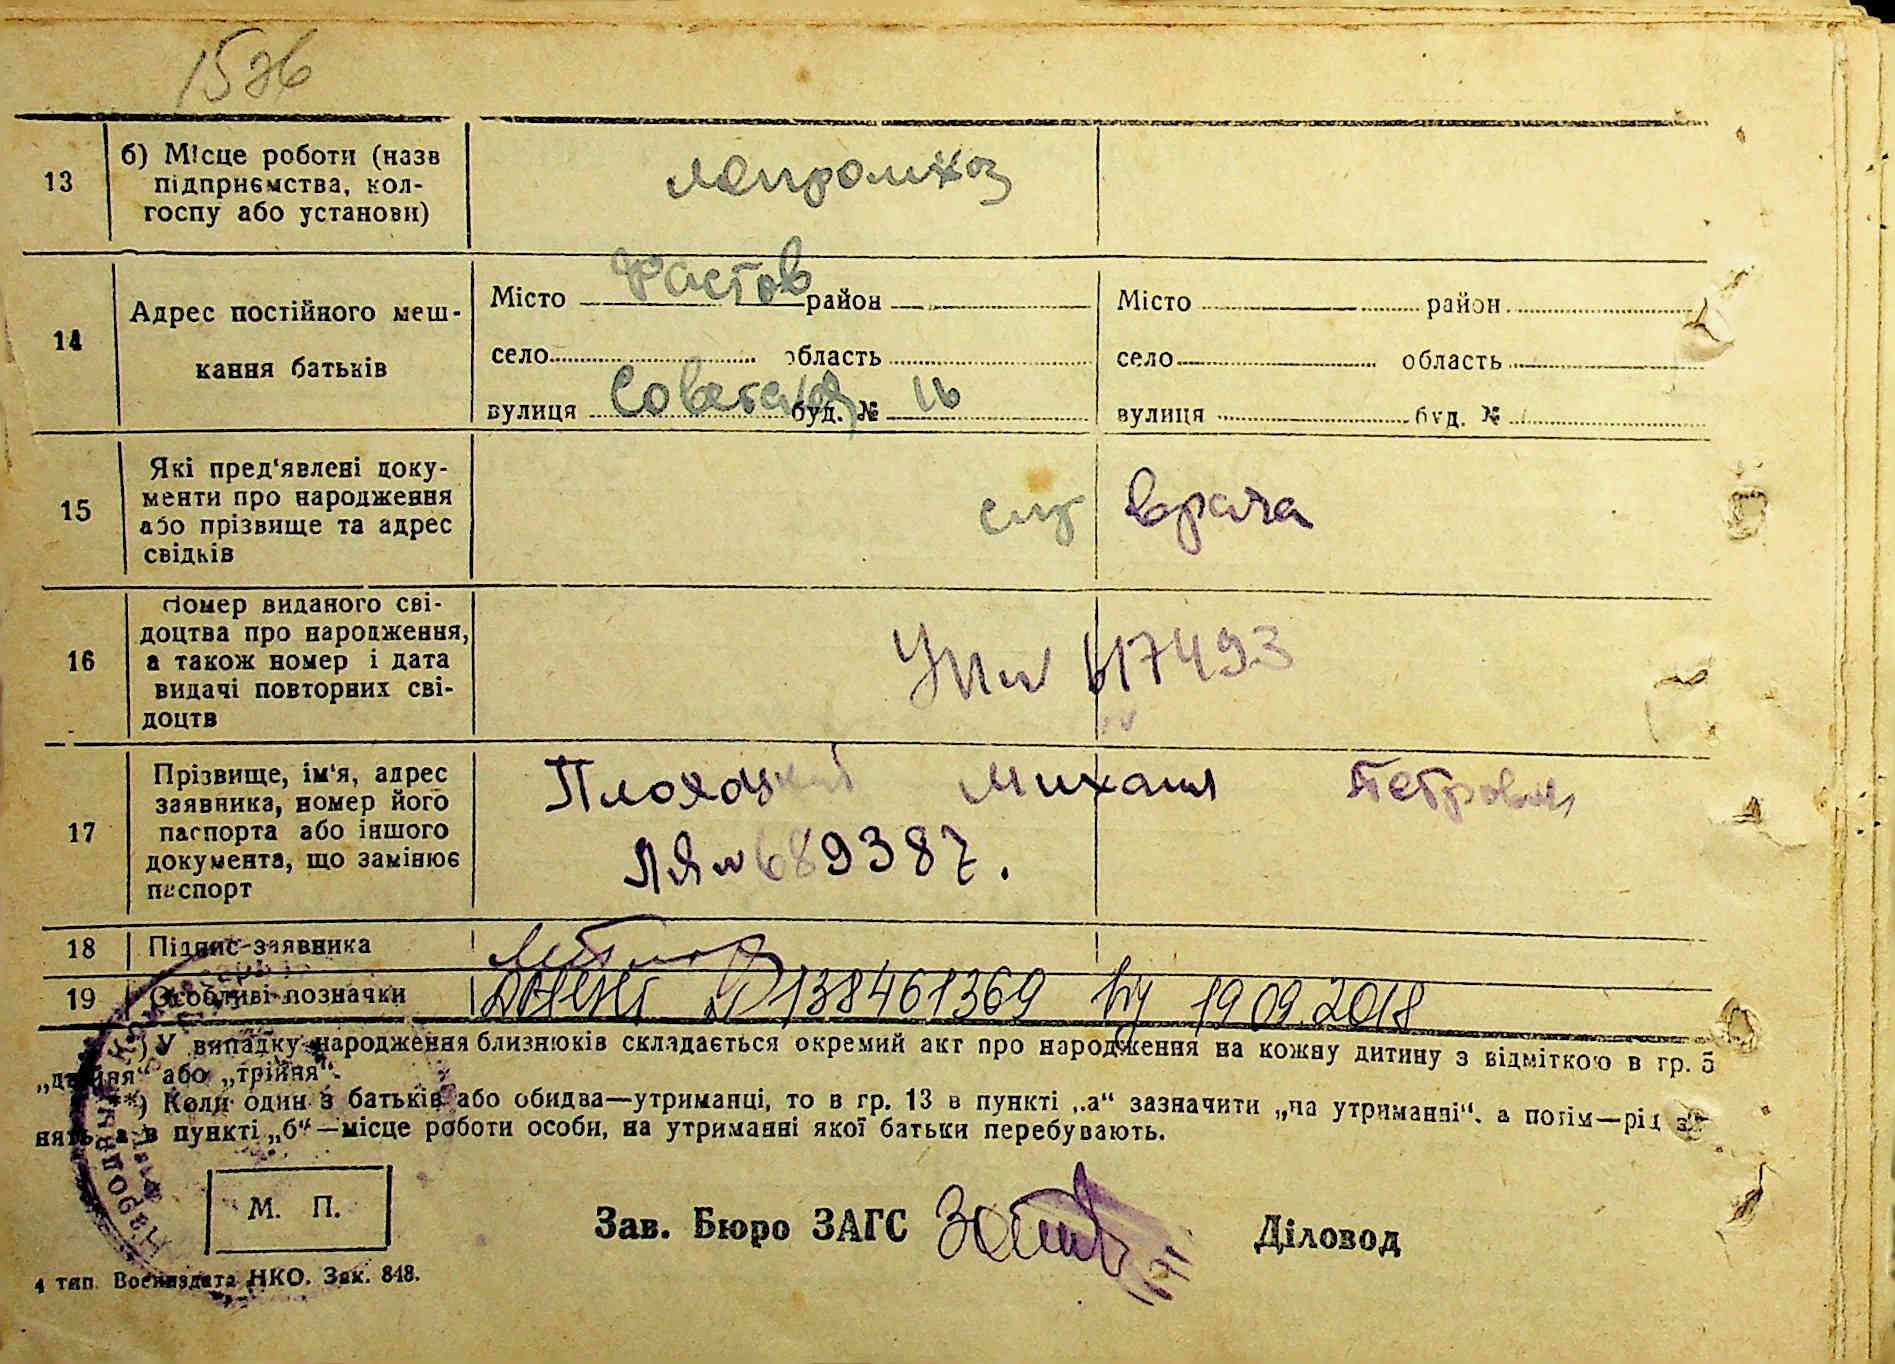 13
б) Місце роботи (назв
підприємства, кол-
госпу або установи)
14
Адрес постійного меш-
кання батьків
Місто Фастов район
село область
вулиця Советская буд. № 16
Місто район
село область
вулиця буд. №
15
Які пред'явлені доку-
менти про народження
або прізвище та адрес
свідків
спр врача
16
Номер виданого сві-
доцтва про народження,
а також номер і дата
видачі повторних сві-
доцтв
617493
17
Прізвище, ім'я, адрес
заявника, номер його
паспорта або іншого
документа, що замінює
паспорт
Михаил Петрович
689387.
18 Підпис заявника
19 Особливі позначки
138461369 19 09.2018
*) У випадку народження близнюків складається окремий акт про народження на кожну дитину з відміткою в гр. 5
„двійня“ або „трійня“.
**) Коли один з батьків або обидва—утриманці, то в гр. 13 в пункті „а“ зазначити „на утриманні“, а потім—рід за-
нять, а в пункті „б“—місце роботи особи, на утриманні якої батьки перебувають.
М. П.
Зав. Бюро ЗАГС
Діловод
4 тип. Воениздата НКО. Зак. 848.